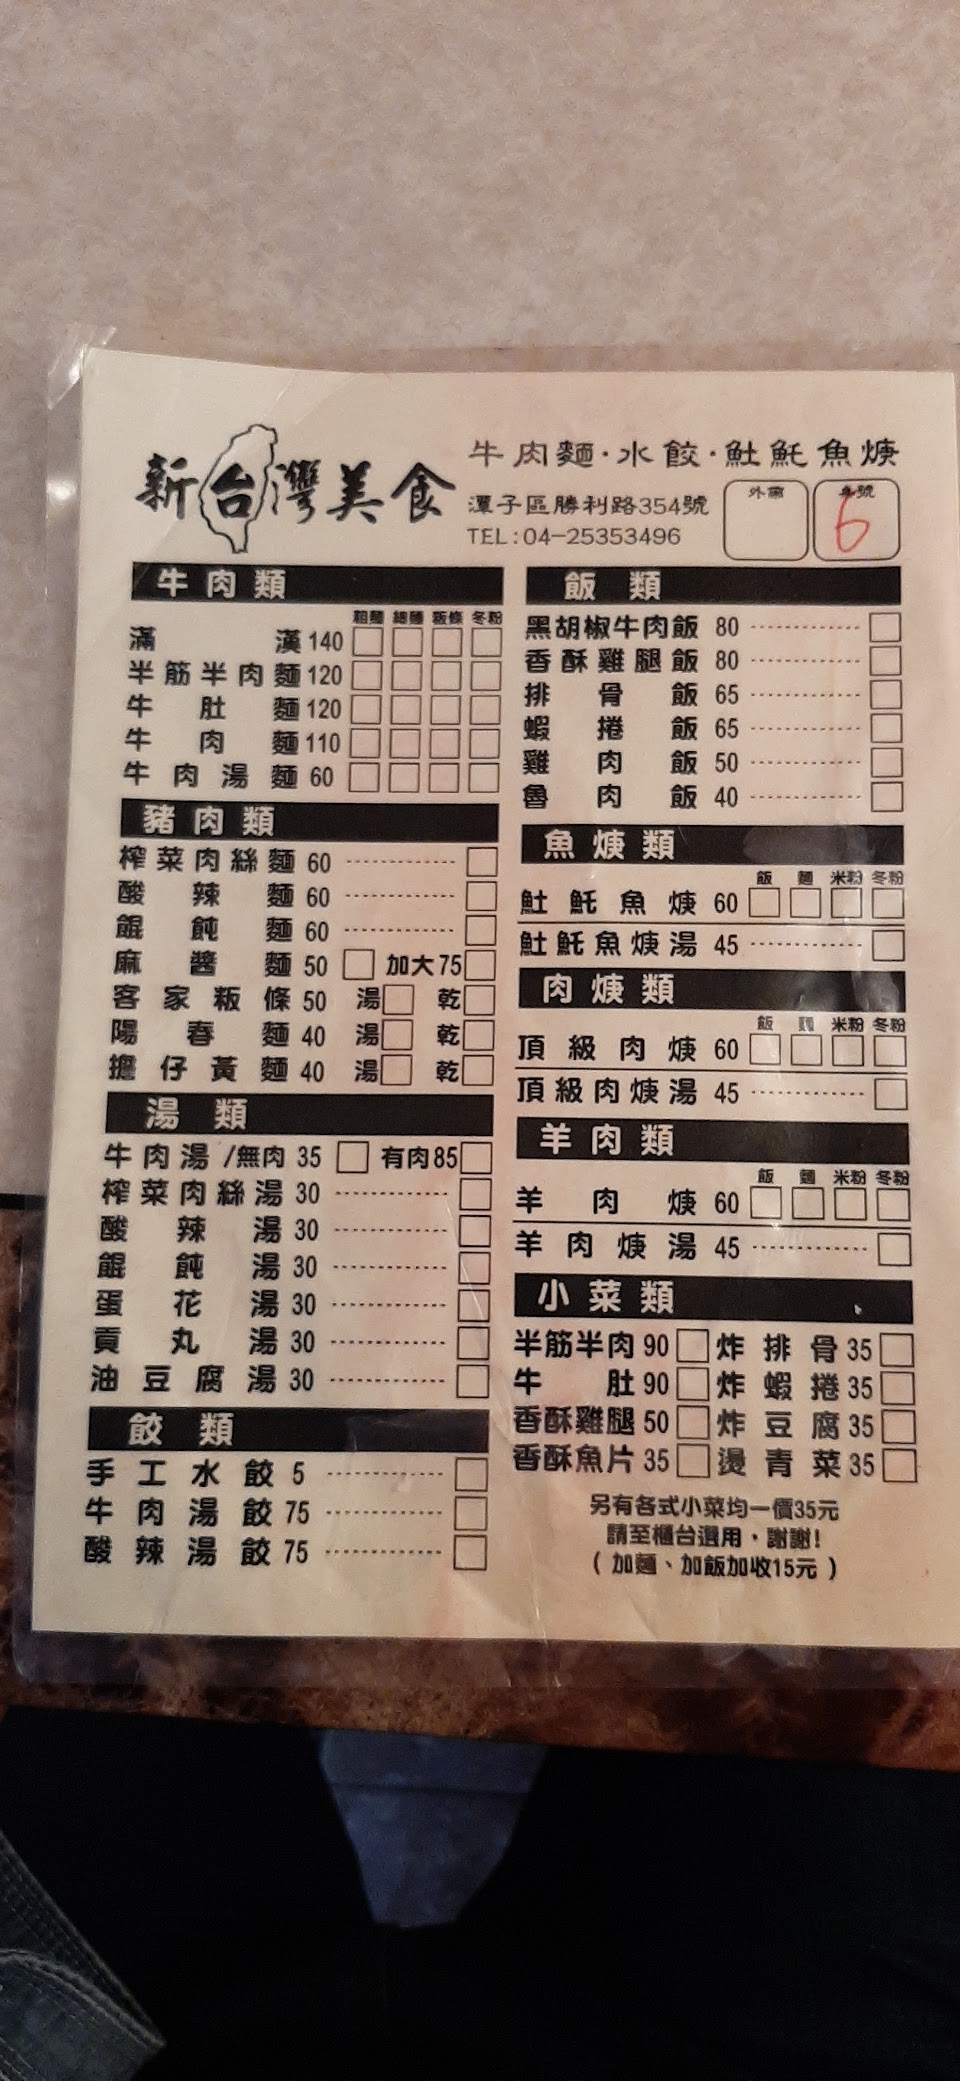 新台灣美食
牛肉麵·水餃·𩵚魠魚焿
潭子區勝利路354號
TEL:04-25353496
外帶 桌號
6
牛肉類
粗麵 細麵 粄條 冬粉
滿漢 140
半筋半肉麵 120
牛肚麵 120
牛肉麵 110
牛肉湯麵 60
豬肉類
榨菜肉絲麵 60
酸辣麵 60
餛飩麵 60
麻醬麵 50 加大75
客家粄條 50 湯 乾
陽春麵 40 湯 乾
擔仔黃麵 40 湯 乾
湯類
牛肉湯/無肉 35 有肉85
榨菜肉絲湯 30
酸辣湯 30
餛飩湯 30
蛋花湯 30
貢丸湯 30
油豆腐湯 30
餃類
手工水餃 5
牛肉湯餃 75
酸辣湯餃 75
飯類
黑胡椒牛肉飯 80
香酥雞腿飯 80
排骨飯 65
蝦捲飯 65
雞肉飯 50
魯肉飯 40
魚焿類
飯 麵 米粉 冬粉
𩵚魠魚焿 60
𩵚魠魚焿湯 45
肉焿類
飯 麵 米粉 冬粉
頂級肉焿 60
頂級肉焿湯 45
羊肉類
飯 麵 米粉 冬粉
羊肉焿 60
羊肉焿湯 45
小菜類
半筋半肉 90 炸排骨 35
牛肚 90 炸蝦捲 35
香酥雞腿 50 炸豆腐 35
香酥魚片 35 燙青菜 35
另有各式小菜均一價35元
請至櫃台選用，謝謝!
(加麵、加飯加收15元)